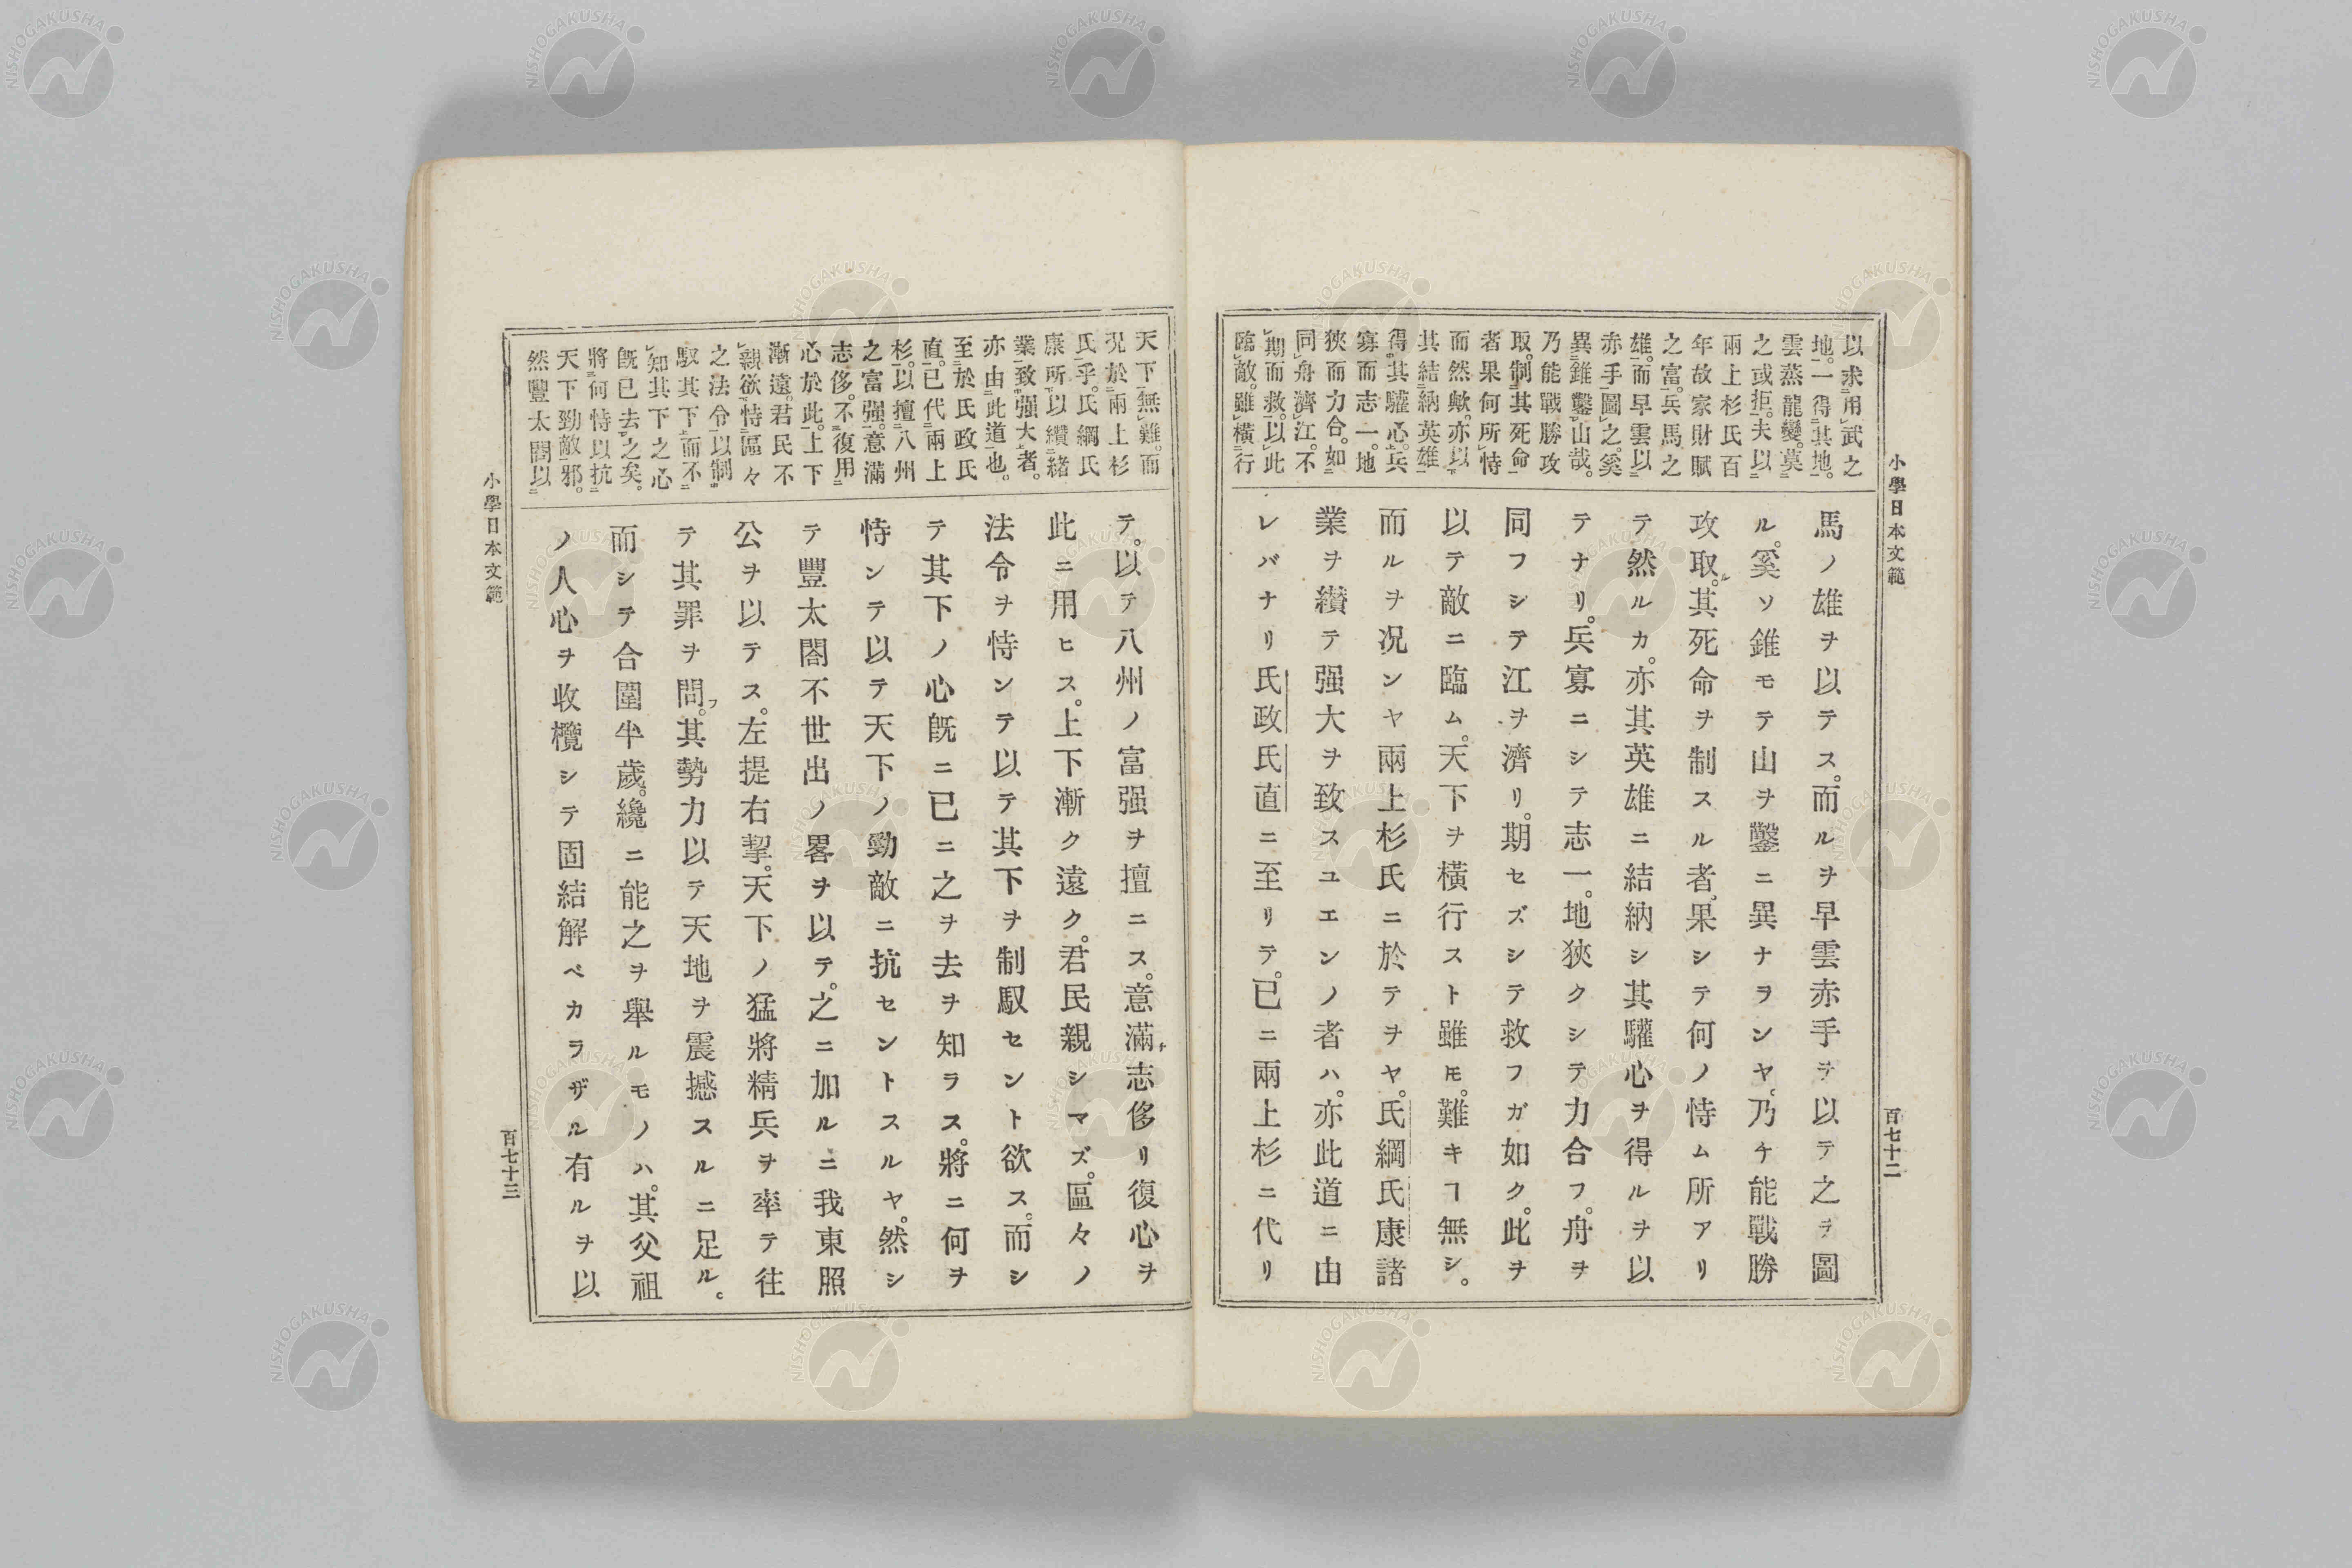 小學日本文範
百七十二
以求用武之
地。一得其地。
雲蒸龍變。莫
之或拒。夫以
兩上杉氏百
年故家財賦
之富。兵馬之
雄。而早雲以
赤手圖之。奚
異錐鑿山哉。
乃能戰勝攻
取。制其死命
者果何所恃
而然歟。亦以
其結納英雄
得其驩心。兵
寡而志一。地
狹而力合。如
同舟濟江。不
期而救。以此
臨敵。雖橫行
馬ノ雄ヲ以テス。而ルヲ早雲赤手ヲ以テ之ヲ圖
ル。奚ソ錐モテ山ヲ鑿ニ異ナランヤ。乃チ能戰勝
攻取。其死命ヲ制スル者。果シテ何ノ恃ム所アリ
テ然ルカ。亦其英雄ニ結納シ其驩心ヲ得ルヲ以
テナリ。兵寡ニシテ志一。地狹クシテ力合フ。舟ヲ
同フシテ江ヲ濟リ。期セズシテ救フガ如ク。此ヲ
以テ敵ニ臨ム。天下ヲ橫行スト雖モ。難キヿ無シ。
而ルヲ况ンヤ兩上杉氏ニ於テヲヤ。氏綱氏康諸
業ヲ纉テ强大ヲ致スユエンノ者ハ。亦此道ニ由
レバナリ氏政氏直ニ至リテ。已ニ兩上杉ニ代リ
天下無難。而
况於兩上杉
氏乎。氏綱氏
康所以纉緒
業致强大者。
亦由此道也。
至於氏政氏
直。已代兩上
杉。以擅八州
之富强。意滿
志侈。不復用
心於此。上下
漸遠。君民不
親欲恃區々
之法令以制
馭其下而不
知其下之心
旣已去之矣。
將何恃以抗
天下勁敵邪。
然豐太閤以
テ。以テ八州ノ富强ヲ擅ニス。意滿チ志侈リ復心ヲ
此ニ用ヒス。上下漸ク遠ク。君民親シマズ。區々ノ
法令ヲ恃ンテ以テ其下ヲ制馭セント欲ス。而シ
テ其下ノ心旣ニ已ニ之ヲ去ヲ知ラス。將ニ何ヲ
恃ンテ以テ天下ノ勁敵ニ抗セントスルヤ。然シ
テ豐太閤不世出ノ畧ヲ以テ。之ニ加ルニ我東照
公ヲ以テス。左提右挈。天下ノ猛將精兵ヲ率テ往
テ其罪ヲ問フ。其勢力以テ天地ヲ震撼スルニ足ル。
而シテ合圍半歲。纔ニ能之ヲ舉ルモノハ。其父祖
ノ人心ヲ收欖シテ固結解ベカラザル有ルヲ以
小學日本文範
百七十三